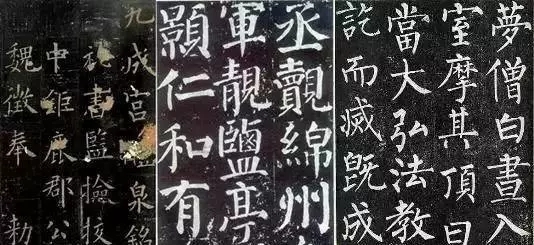 九成宮泉銘
秘書監檢校
中鉅鹿郡公
魏徵奉 勅
丞覿綿州
軍靚鹽亭
顯仁和有
夢僧白晝入
室摩其頂曰
當大弘法教
訖而滅旣成